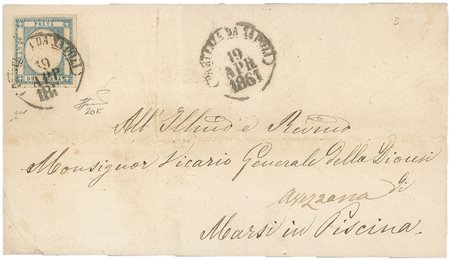 POSTE
DA NAPOLI
19
APR
186
DA NAPOLI
19
APR
1861
3
20K
All' Illmo e Revmo
Monsignor Vicario Generale della Diocesi
Avezzana di
Marsi in Piscina.